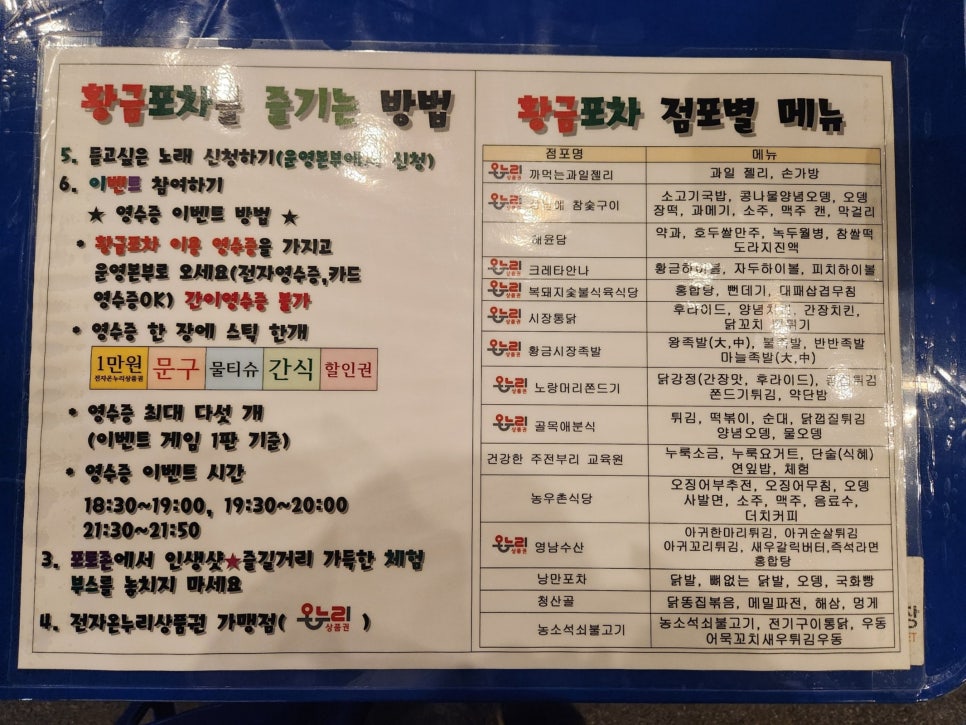 황금포차를 즐기는 방법
5. 듣고싶은 노래 신청하기(운영본부에서 신청)
6. 이벤트 참여하기
★ 영수증 이벤트 방법 ★
• 황금포차 이용 영수증을 가지고
운영본부로 오세요(전자영수증,카드
영수증OK) 간이영수증 불가
• 영수증 한 장에 스틱 한개
1만원 전자온누리상품권 문구 물티슈 간식 할인권
• 영수증 최대 다섯 개
(이벤트 게임 1판 기준)
• 영수증 이벤트 시간
18:30~19:00, 19:30~20:00
21:30~21:50
3. 포토존에서 인생샷★즐길거리 가득한 체험
부스를 놓치지 마세요
4. 전자온누리상품권 가맹점( 온누리 상품권 )
황금포차 점포별 메뉴
점포명 메뉴
온누리 상품권 까먹는과일젤리 과일 젤리, 손가방
온누리 상품권 참숯구이 소고기국밥, 콩나물양념오뎅, 오뎅
장떡, 과메기, 소주, 맥주 캔, 막걸리
해윤담 약과, 호두쌀만주, 녹두월병, 참쌀떡
도라지진액
온누리 상품권 크레타안나 황금하이볼, 자두하이볼, 피치하이볼
온누리 상품권 복돼지숯불식육식당 홍합탕, 뻔데기, 대패삼겹무침
온누리 상품권 시장통닭 후라이드, 양념치킨, 간장치킨,
닭꼬치
온누리 상품권 황금시장족발 왕족발(大,中), 불족발, 반반족발
마늘족발(大,中)
온누리 상품권 노랑머리쫀드기 닭강정(간장맛, 후라이드),
쫀드기튀김, 약단밤
온누리 상품권 골목애분식 튀김, 떡볶이, 순대, 닭껍질튀김
양념오뎅, 물오뎅
건강한 주전부리 교육원 누룩소금, 누룩요거트, 단술(식혜)
연잎밥, 체험
농우촌식당 오징어부추전, 오징어무침, 오뎅
사발면, 소주, 맥주, 음료수,
더치커피
온누리 상품권 영남수산 아귀한마리튀김, 아귀순살튀김
아귀꼬리튀김, 새우갈릭버터,즉석라면
홍합탕
낭만포차 닭발, 뼈없는 닭발, 오뎅, 국화빵
청산골 닭똥집볶음, 메밀파전, 해삼, 멍게
농소석쇠불고기 농소석쇠불고기, 전기구이통닭, 우동
어묵꼬치새우튀김우동